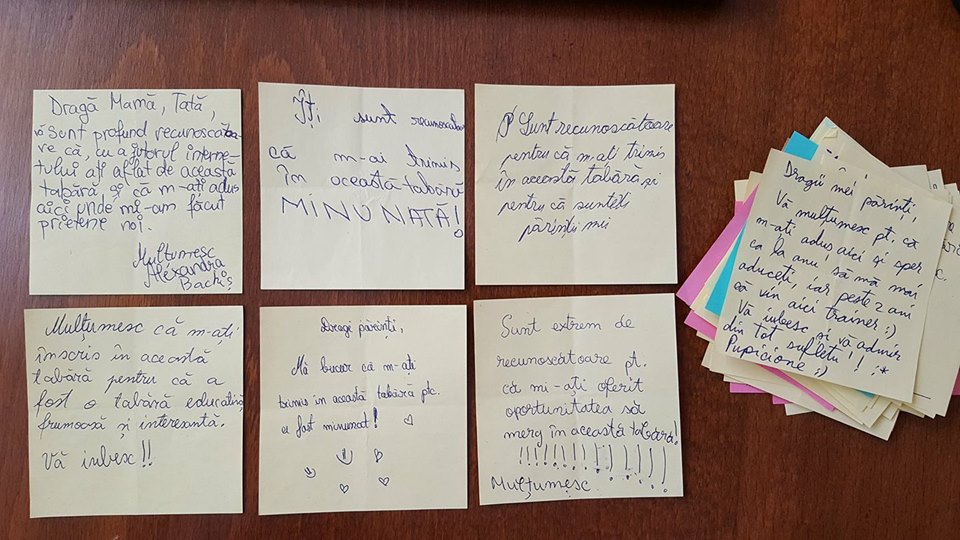 Dragă Mamă, Tată,
vă sunt profund recunoscătoa-
re că, cu ajutorul interne-
tului ați aflat de această
tabără și că m-ați adus
aici unde mi-am făcut
prietene noi.
Mulțumesc
Alexandra
Îți sunt recunoscător
că m-ai trimis
în această tabără
MINUNATĂ!
Sunt recunoscătoare
pentru că m-ați trimis
în această tabăra și
pentru că sunteți
părinții mei
Mulțumesc că m-ați
înscris în această
tabără pentru că a
fost o tabără educativă,
frumoasă și interesantă.
Vă iubesc!!
Dragi părinți,
Mă bucur că m-ați
trimis in această tabără ptc.
a fost minunat!
Sunt extrem de
recunoscătoare pt.
că mi-ați oferit
oportunitatea să
merg în această tabără!
!!!!!!!!!!!!!!!
Mulțumesc
Dragii mei părinți,
Vă mulțumesc pt. că
m-ați adus aici și sper
ca la anu, să mă mai
aduceți, iar peste 2 ani
să vin aici trainer :)
Vă iubesc și vă admir
din tot sufletu! ! :*
Pupicione ;)